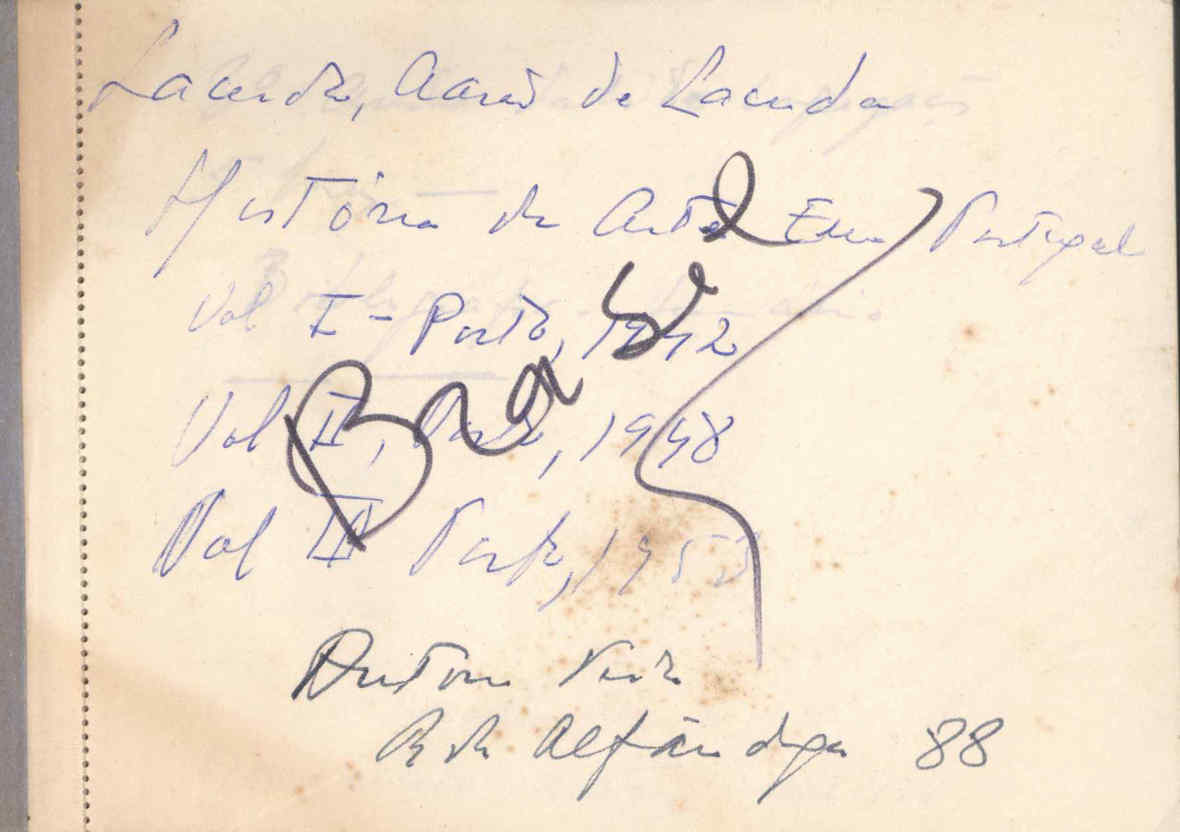 Lacerda, Aarão de Lacerda
História da Arte Em Portugal
Vol I - Porto, 1942
Vol II, Porto, 1948
Vol III Porto, 1953
Brasil
Antonio
R da Alfândega 88